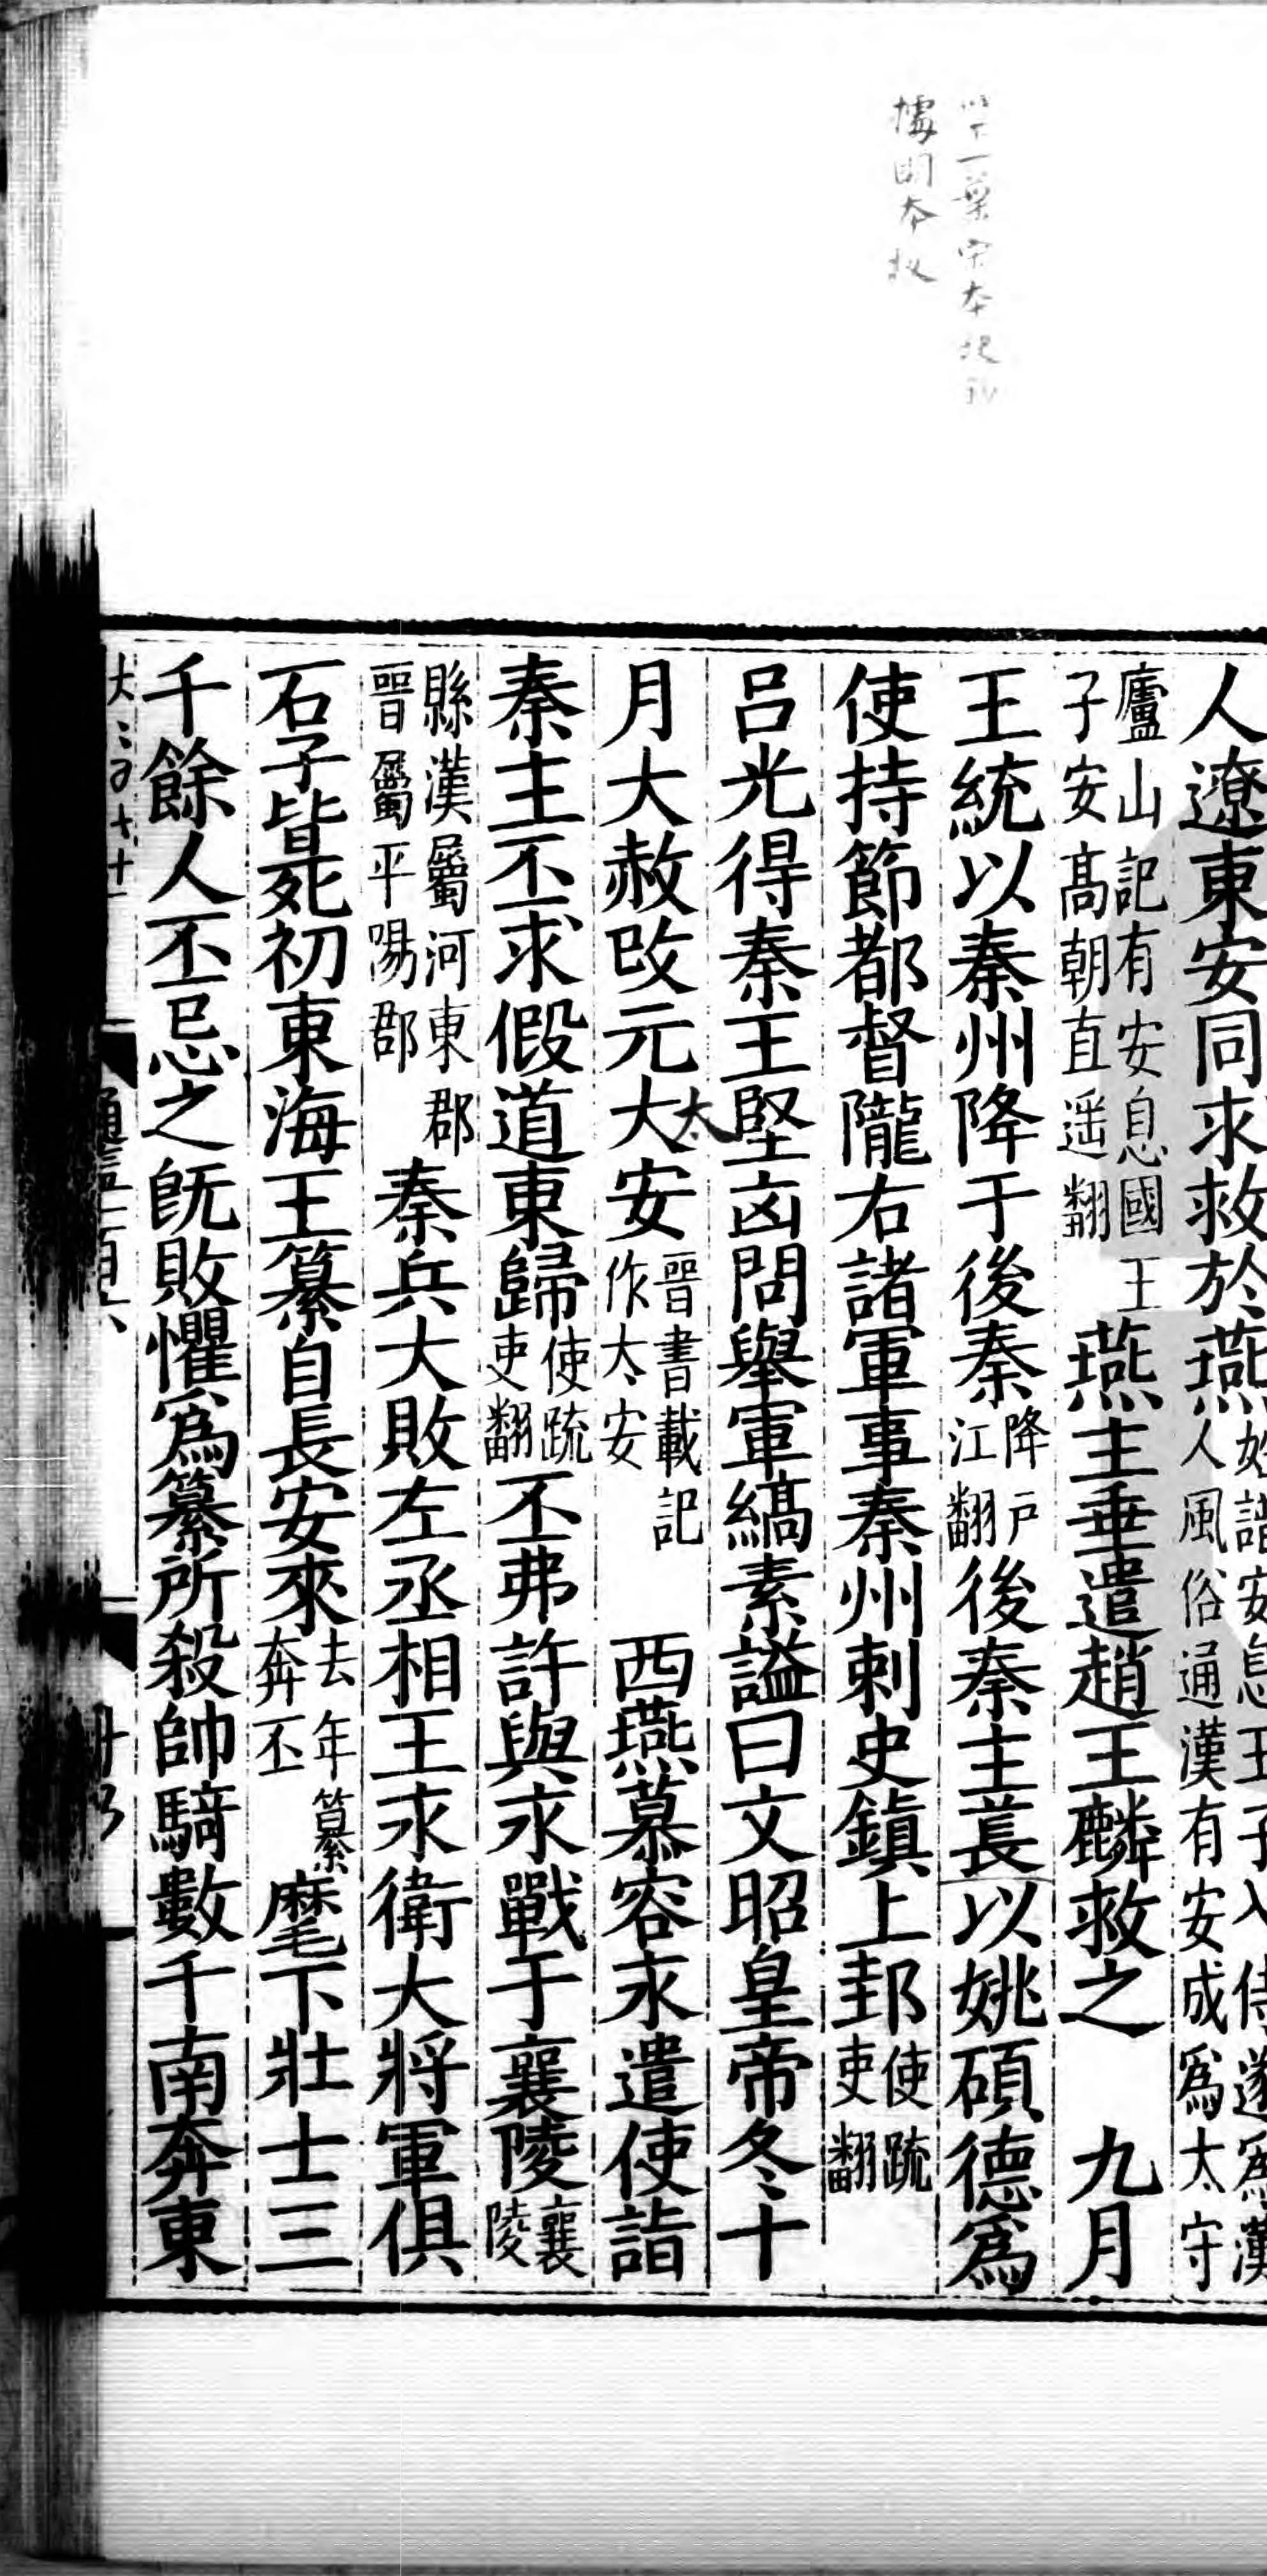 人遼東安同求救於燕姓譜安息王子入侍遂爲漢人風俗通漢有安成爲太守
廬山記有安息國王子安高朝直遥翻燕主垂遣趙王麟救之九月
王統以秦州降于後秦降户江翻後秦主萇以姚碩德爲
使持節都督隴右諸軍事秦州刺史鎮上邽使疏吏翻
呂光得秦王堅凶問舉軍縞素謚曰文昭皇帝冬十
月大赦改元大安晉書載記作太安西燕慕容永遣使詣
太
秦主丕求假道東歸使疏吏翻丕弗許與永戰于襄陵襄陵
縣漢屬河東郡晉屬平陽郡秦兵大敗左丞相王永衛大將軍俱
石子皆死初東海王纂自長安來去年纂奔丕麾下壯士三
千餘人丕忌之旣敗懼爲纂所殺帥騎數千南奔東
以下一葉宋本
據明本